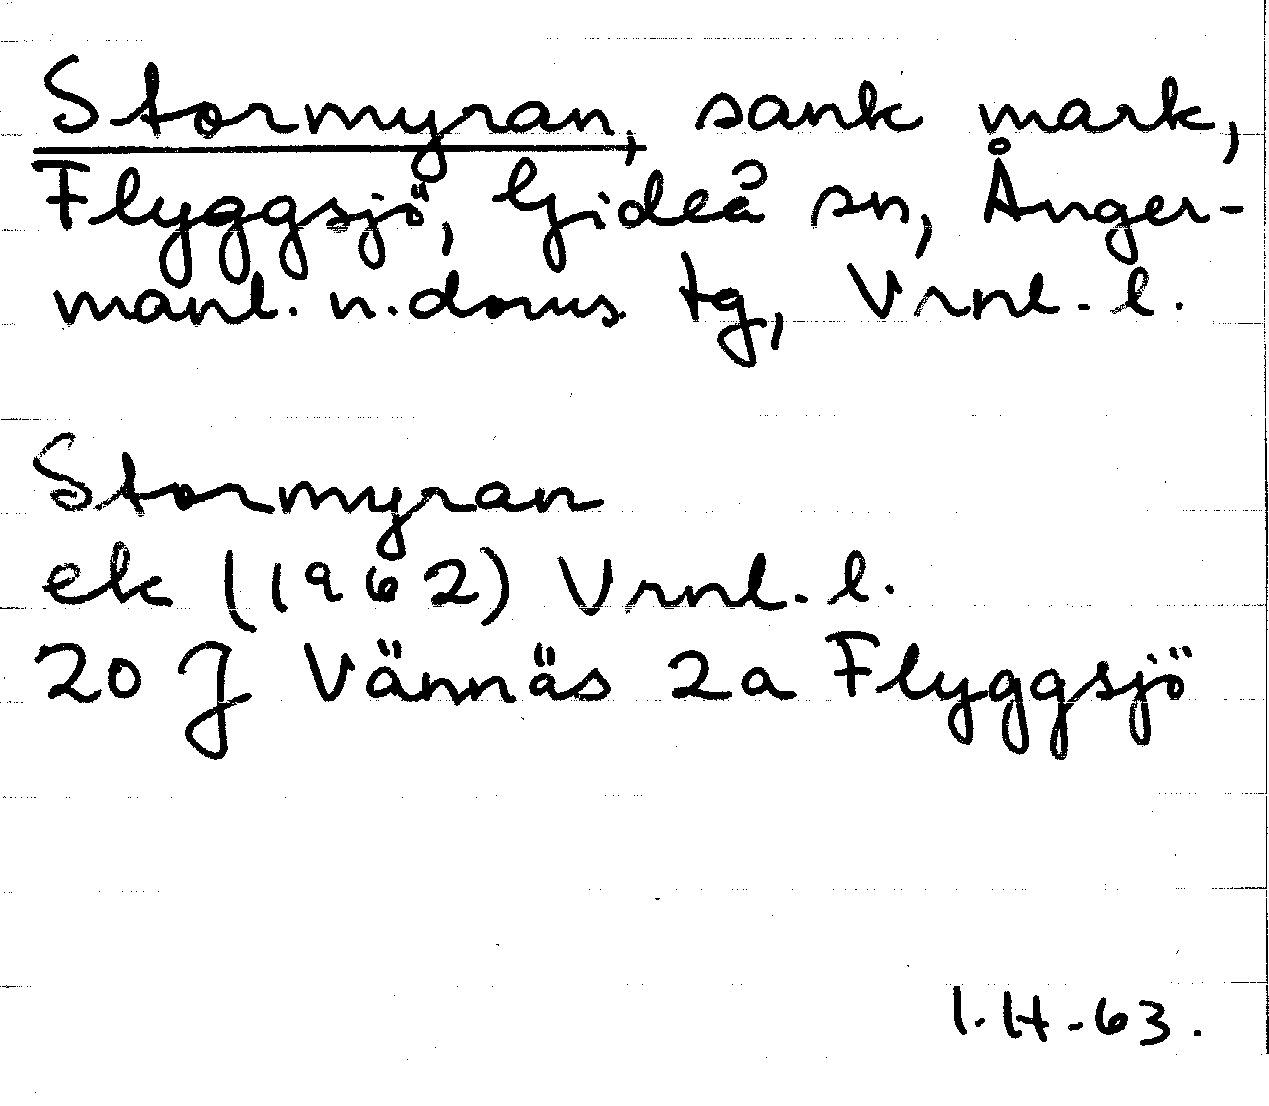 Stormyran, sank mark,
Flyggsjö, Gideå sn, Ånger-
manl. n. doms tg, Vrnl. l.
Stormyran
ek (1962) Vrnl. l.
20 J Vännäs 2a Flyggsjö
I. H -63.